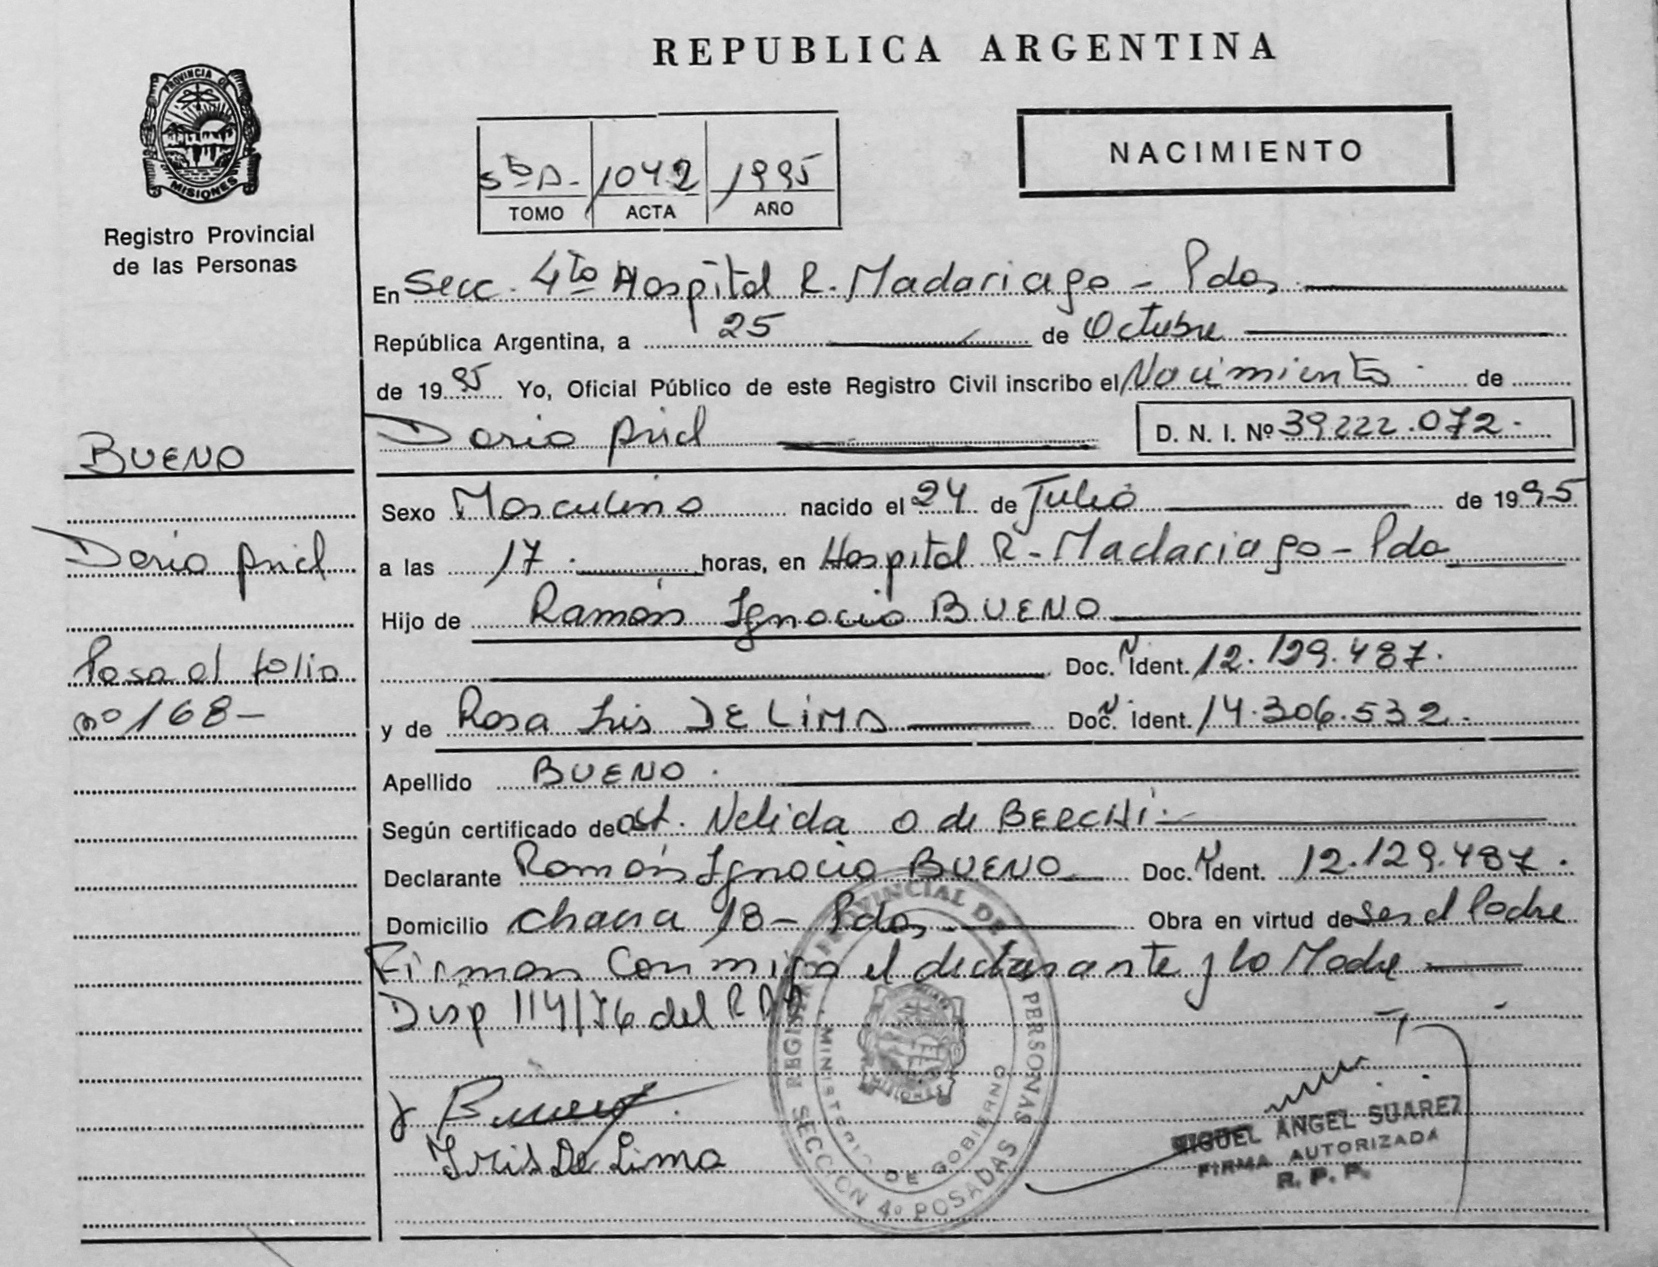 REPUBLICA ARGENTINA
PROVINCIA DE
MISIONES
Registro Provincial
de las Personas
1042 1995
TOMO ACTA AÑO
NACIMIENTO
En Secc. 4to Hospital R. Madariaga - Pdas
República Argentina, a 25 de Octubre
de 1995 Yo, Oficial Público de este Registro Civil inscribo el Nacimiento de
Dario Ariel D. N. I. Nº 39222.072.
BUENO
Sexo Masculino nacido el 24 de Julio de 1995
Dario Ariel
a las 17. horas, en Hospital R - Madariaga - Pda
Hijo de Ramón Ignacio BUENO
Pasa al folio
nº 168-
Doc. N Ident. 12.129.487.
y de Rosa Iris DE LIMA Doc. N Ident. 14.306.532.
Apellido BUENO.
Según certificado de ost. Nelida O de BERCHI.
Declarante Ramón Ignacio BUENO Doc. N Ident. 12.129.487.
Domicilio chacra 18- Pdas Obra en virtud de ser el Padre
Firman conmigo el declarante y la Madre
Disp 114/76 del
REGISTRO PROVINCIAL DE PERSONAS
MINISTERIO DE GOBIERNO
MISIONES
SECCION 4º POSADAS
Iris De Lima
MIGUEL ANGEL SUAREZ
FIRMA AUTORIZADA
R. P. P.